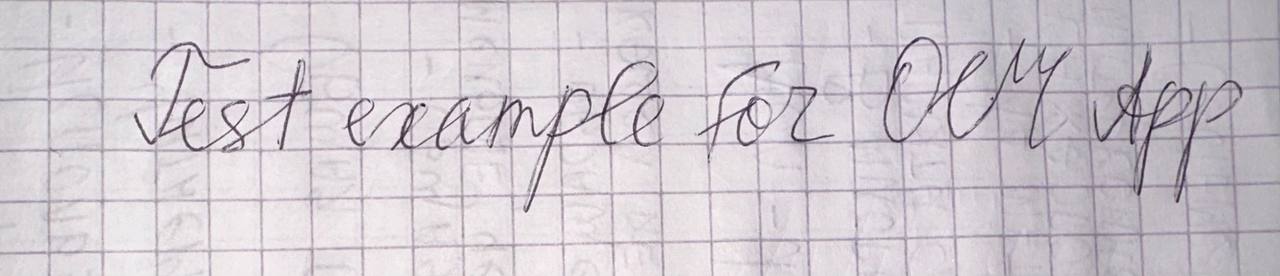 Test example for OCM App